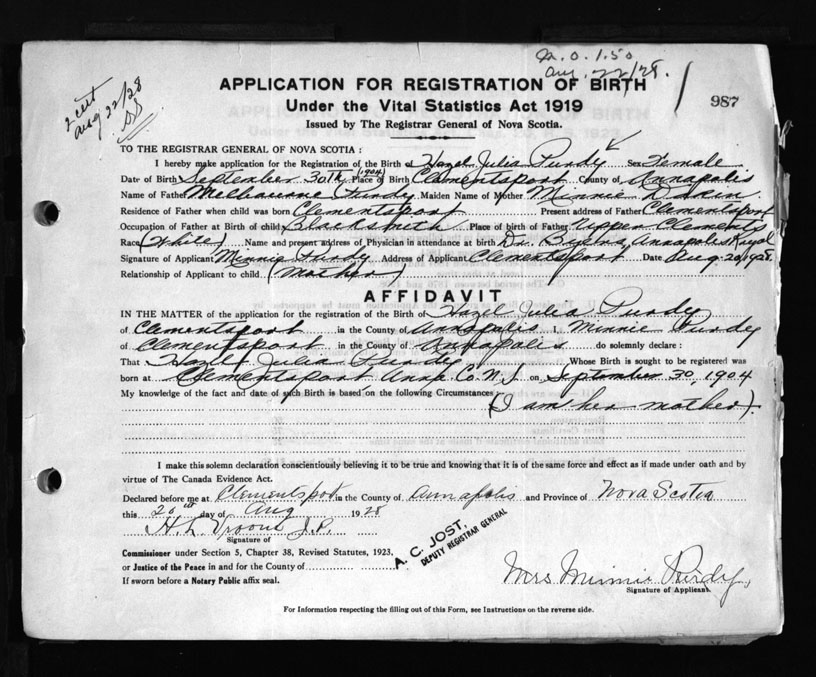 M.O. 1.50
Aug. 22/28.
2 cert
Aug 22/28
987
APPLICATION FOR REGISTRATION OF BIRTH
Under the Vital Statistics Act 1919
Issued by The Registrar General of Nova Scotia.
TO THE REGISTRAR GENERAL OF NOVA SCOTIA:
I hereby make application for the Registration of the Birth of Hazel Julia Purdy Sex Female
Date of Birth September 30th (1904) Place of Birth Clementsport County of Annapolis
Name of Father Melbourne Purdy Maiden Name of Mother Minnie Rakin
Residence of Father when child was born Clementsport Present address of Father Clementsport
Occupation of Father at Birth of child Blacksmith Place of birth of Father Upper Clements
Race (White) Name and present address of Physician in attendance at birth Dr. Annapolis Royal
Signature of Applicant Minnie Purdy Address of Applicant Clementsport Date Aug. 20, 1928.
Relationship of Applicant to child (mother)
AFFIDAVIT
IN THE MATTER of the application for the registration of the Birth of Hazel Julia Purdy
of Clementsport in the County of Annapolis I, Minnie Purdy
of Clementsport in the County of Annapolis do solemnly declare:
That Hazel Julia Purdy Whose Birth is sought to be registered was
born at Clementsport Anap. Co. N.S. on September 30, 1904
My knowledge of the fact and date of such Birth is based on the following Circumstances:
(I am her mother).
I make this solemn declaration conscientiously believing it to be true and knowing that it is of the same force and effect as if made under oath and by
virtue of The Canada Evidence Act.
Declared before me at Clementsport in the County of Annapolis and Province of Nova Scotia
this 20th day of Aug 1928
H. L. Vroom J.P.
Signature of
Commissioner under Section 5, Chapter 38, Revised Statutes, 1923.
or Justice of the Peace in and for the County of
If sworn before a Notary Public affix seal.
A. C. JOST,
DEPUTY REGISTRAR GENERAL
Mrs Minnie Purdy,
Signature of Applicant
For Information respecting the filling out of this Form, see Instructions on the reverse side.